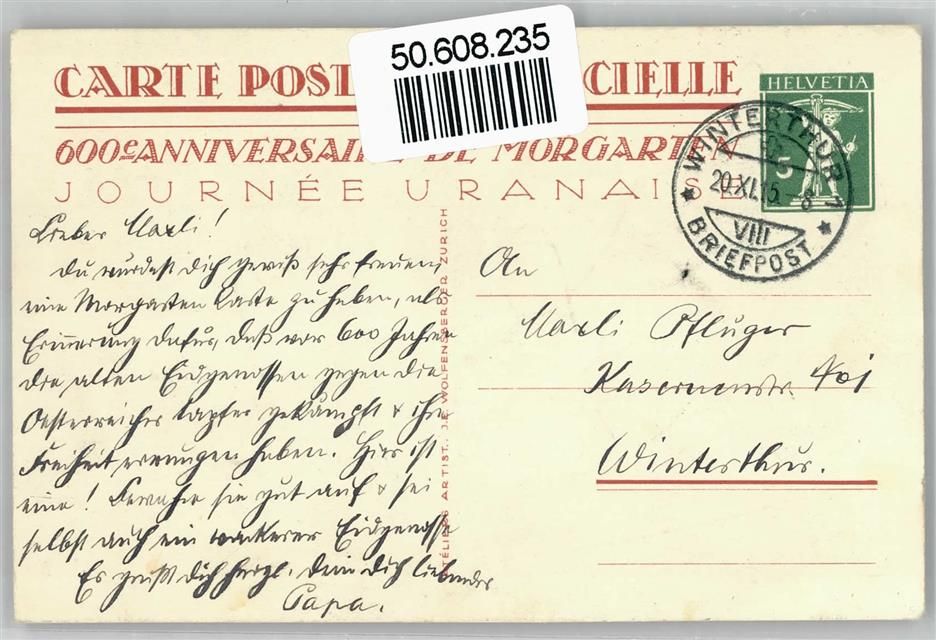 50.608.235
CARTE POST CIELLE
600e ANNIVERSAI DE MORGARTEN
JOURNÉE URANAISE
HELVETIA
5
WINTERTHUR 1
20.XI.15.-8
VIII
BRIEFPOST
Lieber Maxli!
Du wurdest dich gewiß sehr freuen,
eine Morgarten Karte zu haben, als
Erinnerung dafür, daß vor 600 Jahren
die alten Eidgenossen gegen die
Oesterreicher tapfer gekämpft & ihre
Freiheit errungen haben. Hier ist
eine! Bewahre sie gut auf & sei
selbst auch ein wackerer Eidgenosse
Es grüßt dich herzl. dein dich liebender
Papa.
ATELIERS ARTIST. J.E. WOLFENSBERGER, ZURICH
An
Maxli Pfluger
Kasernenstr. No 1
Winterthur.